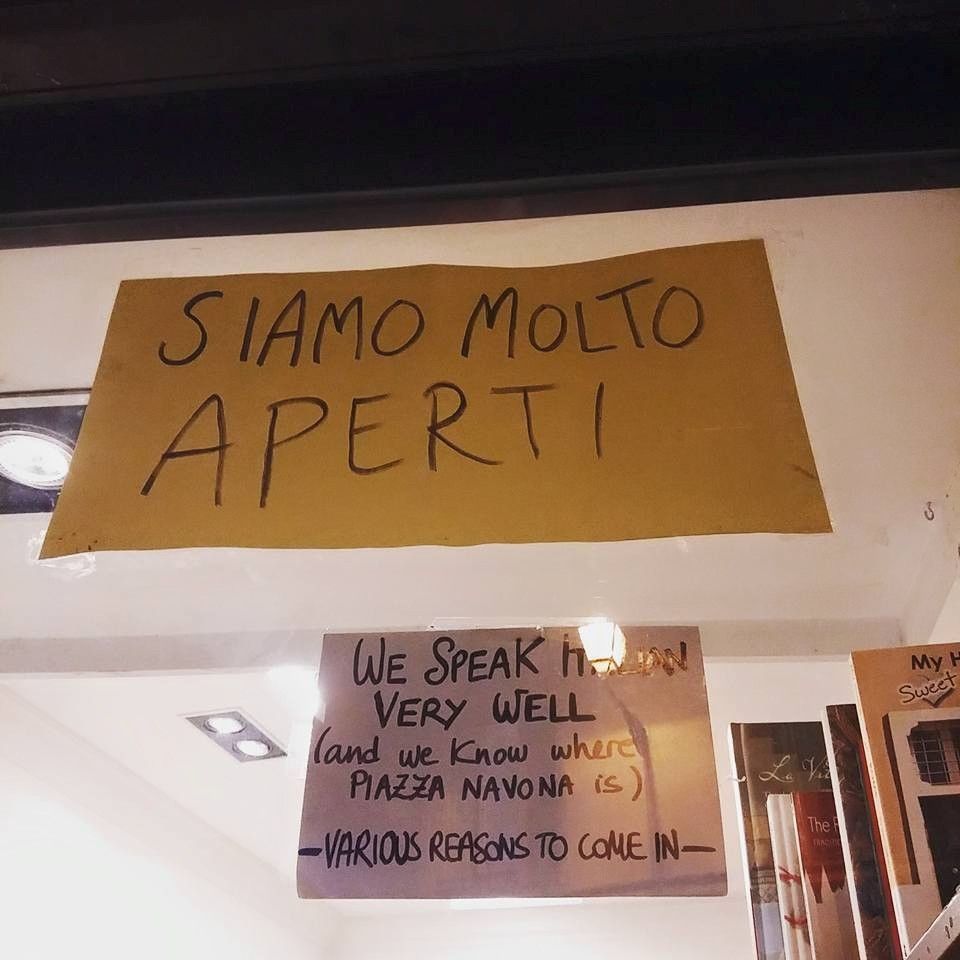 SIAMO MOLTO
APERTI
WE SPEAK ITALIAN
VERY WELL
(and we Know where
PIAZZA NAVONA is)
—VARIOUS REASONS TO COME IN—
My
Sweet
La
The